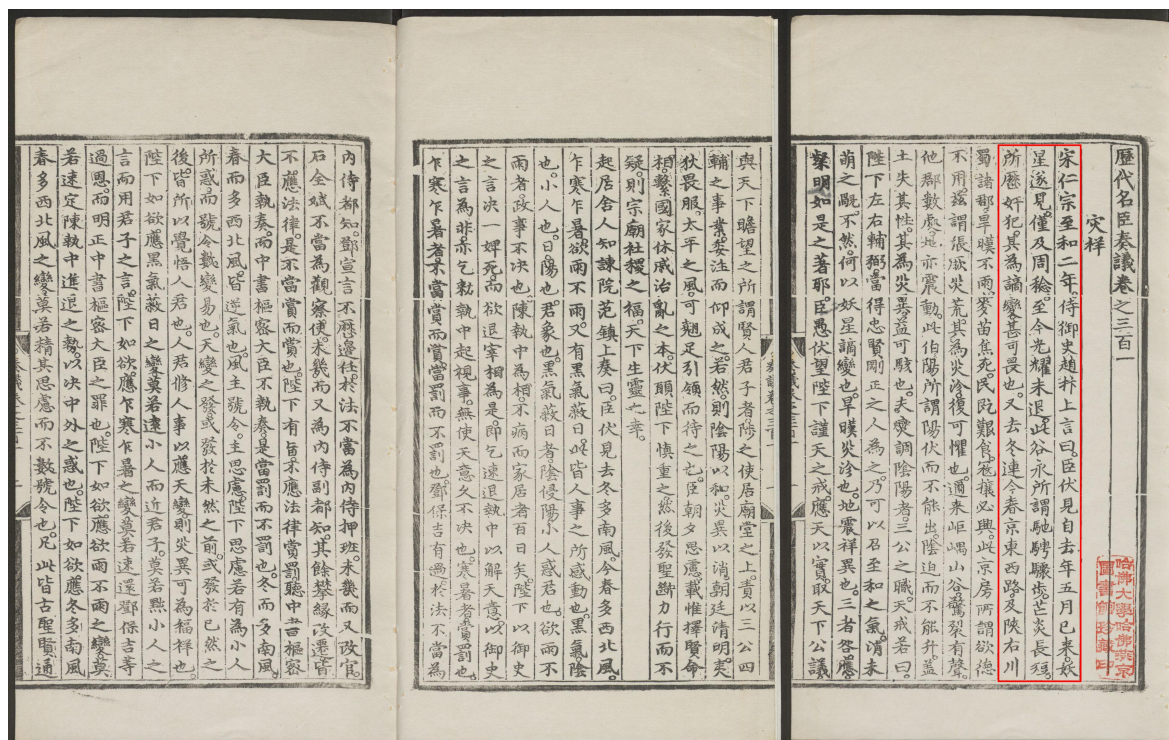 歷代名臣奏議卷之三百一
灾祥
宋仁宗至和二年侍御史趙抃上言曰。臣伏見自去年五月已来。妖
星遂見。僅及周稔。至今光耀未退。此谷永所謂馳騁驟步。芒炎長短。
所歷奸犯。其為謫變甚可畏也。又去冬連今春京東西路及陜右川
蜀諸郡旱暵不雨。麥苗焦死。民阮艱食。寇攘必興。此京房所謂欲德
不用。茲謂張。厥災荒。其為災沴復可懼也。適来岠嵎山谷驚裂有聲。
他郡數處地亦震動。此伯陽所謂陽伏而不能出。陰迫而不能升。盖
土失其性。其為災異益可駭也。夫燮調陰陽者。三公之職。天戒若曰。
陛下左右輔弼。當得忠賢剛正之人為之。乃可以召至和之氣。消未
萌之眚。不然何以妖星謫變也。旱暵災沴也。地震祥異也。三者咎應
粲明如是之著耶。臣愚伏望陛下謹天之戒。應天以實。取天下公議
與天下瞻望之所謂賢人君子者。陟之使居廟堂之上。責以三公四
輔之事業。委注而仰成之。若然。則陰陽以和。災異以消。朝廷清明。夷
狄畏服。太平之風。可翹足引領而待之也。臣朝夕思慮。載惟擇賢命
相。繫國家休戚治亂之本。伏願陛下慎重之。然後發聖斷。力行而不
疑。則宗廟社稷之福。天下生靈之幸。
起居舍人知諫院范鎮上奏曰。臣伏見去冬多南風。今春多西北風。
乍寒乍暑。欲雨不雨。又有黑氣蔽日。此皆人事之所感動也。黑氣陰
也。小人也。日陽也。君象也。黑氣蔽日者。陰侵陽。小人惑君也。欲雨不
雨者。政事不决也。陳執中為相。不病而家居者百日矣。陛下以御史
之言决一婢死。而欲退宰相為是。即乞速退執中以解天意。以御史
之言為非。亦乞敕執中起視事。無使天意久不决也。寒暑者賞罰也。
乍寒乍暑者。不當賞而賞。當罰而不罰也。鄧保吉有過。於法不當為
內侍都知。鄧宣言不歷邊任。於法不當為內侍押班。未幾而又改官。
石全斌不當為觀察使。未幾而又為內侍副都知。其餘攀緣改遷。皆
不應法律。是不當賞而賞也。陛下有旨。不應法律賞罰。聽中書樞密
大臣執奏。而中書樞密大臣不執奏。是當罰而不罰也。冬而多南風。
春而多西北風。皆逆氣也。風主號令。主思慮。陛下思慮。若有為小人
所惑而號令數變易也。天變之發。或發於未然之前。或發於已然之
後。皆所以覺悟人君也。人君修人事以應天變。則災異可為福祥也。
陛下如欲應黑氣蔽日之變。莫若遠小人而近君子。莫若黜小人之
言而用君子之言。陛下如欲應乍寒乍暑之變。莫若速還鄧保吉等
過恩。而明正中書樞密大臣之罪也。陛下如欲應欲雨不雨之變。莫
若速定陳執中進退之勢。以决中外之惑也。陛下如欲應冬多南風
春多西北風之變。莫若精其思慮而不數號令也。凡此皆古聖賢通
哈佛大學哈佛燕京
圖書館珍藏印